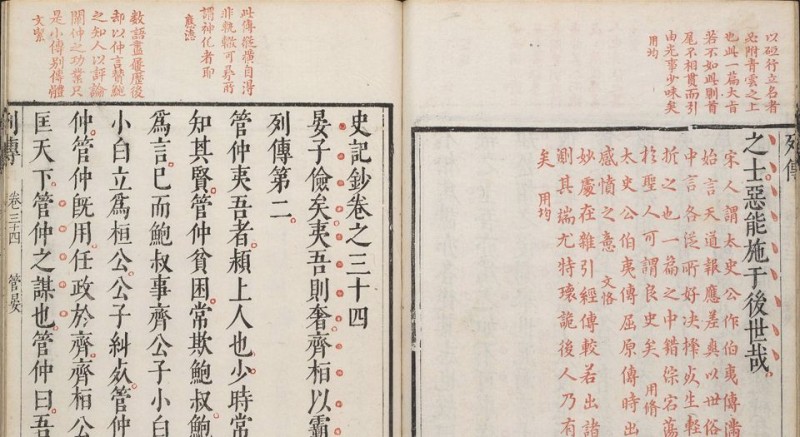 列傳
以砥行立名者
必附青雲之上
也此一篇大旨
若不如此則首
尾不相貫而引
由光事少味矣
用均
之士惡能施于後世哉
宋人謂太史公作伯夷傳滿
始言天道報應差爽以世俗
中言各從所好决擇处生輕
折之也一篇之中錯綜宕蕩
於聖人可謂良史矣 用脩
太史公伯夷傳屈原傳時出
感憤之意 文恪
妙處在雜引經傳較若出諸
則其端尤特瓌詭後人乃有
矣 用均
此傳縱擴自得
非軌轍可尋所
謂神化者耶
應德
數語盡 歷後
却以仲言贊鮑
之知人以評論
關仲之功業只
是小傳别傳體
文絜
史記鈔卷之三十四
晏子儉矣夷吾則奢齊桓以霸
列傳第二
管仲夷吾者潁上人也少時常
知其賢管仲貧困常欺鮑叔鮑
爲言已而鮑叔事齊公子小白
小白立爲桓公公子糾处管仲
仲管仲旣用任政於齊齊桓公
匡天下管仲之謀也管仲曰吾
列傳 卷三十四 管晏